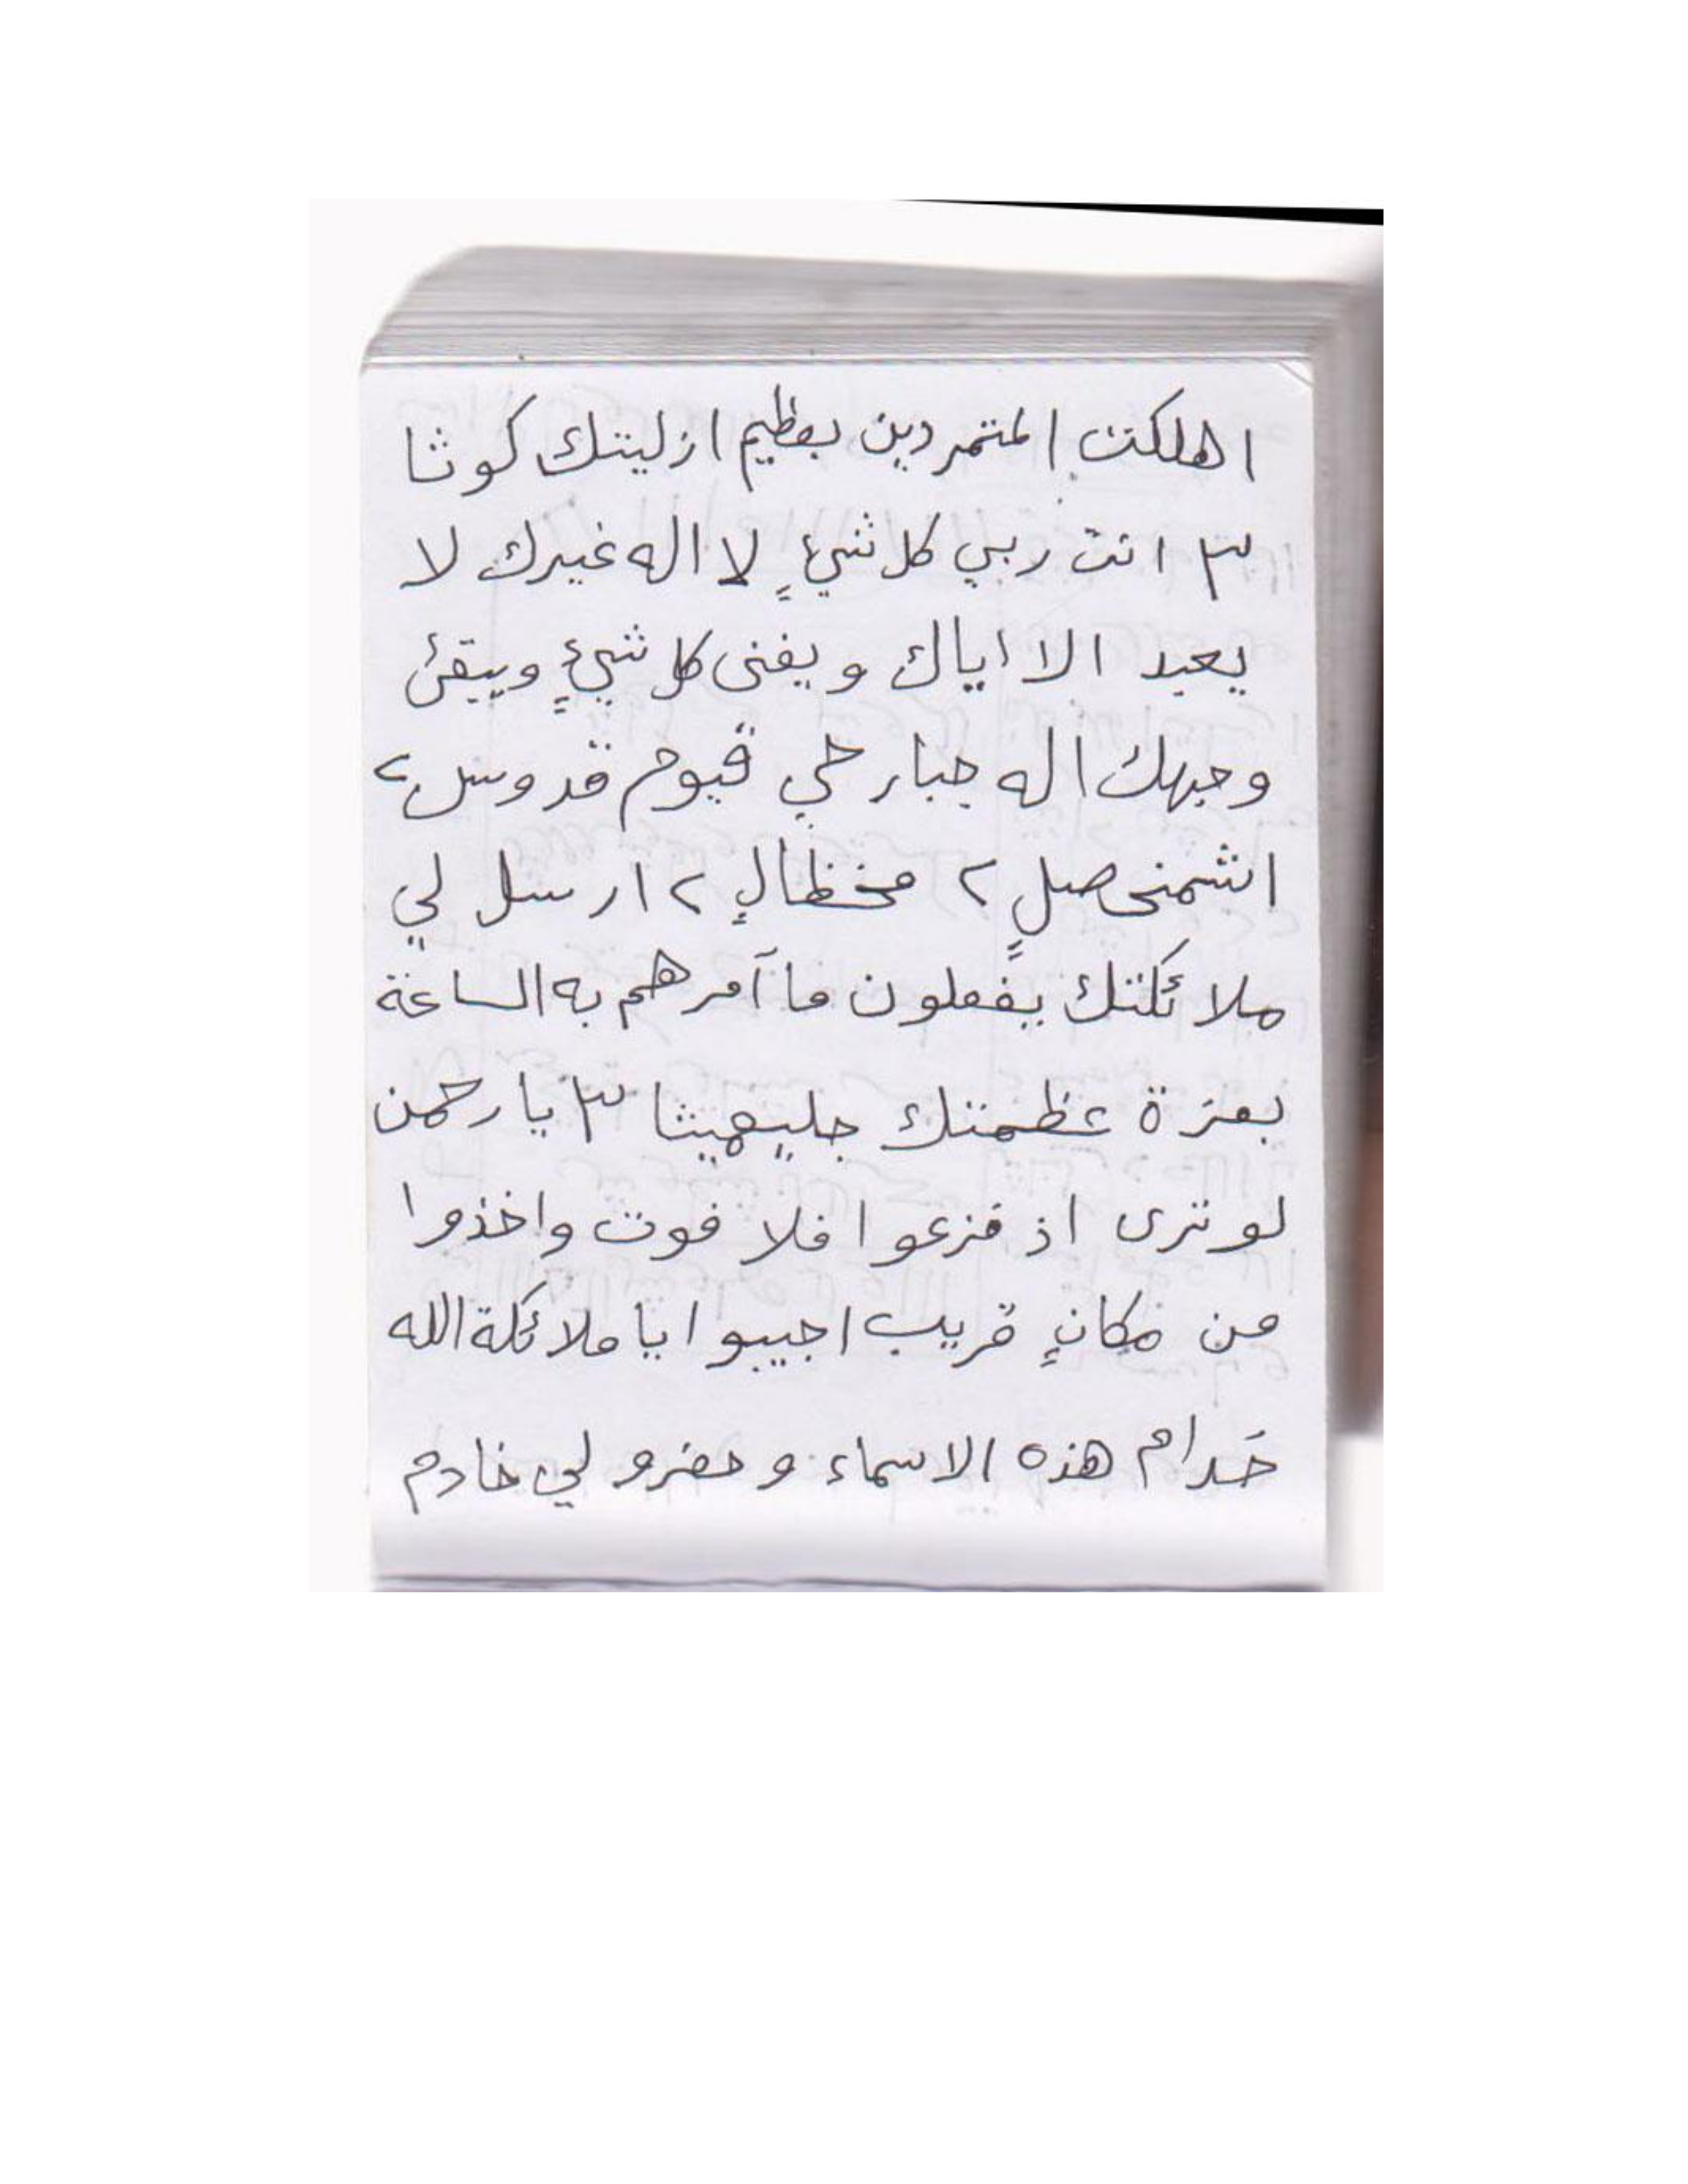 اهلكت المتمردين بعظيم ازليتك كوثا
٣ انت ربي كل شيءٍ لا اله غيرك لا
يعبد الا اياك ويفنى كل شيءٍ ويبقئ
وجهك اله جبار حي قيوم قدوس ٢
اشمخصلٍ ٢ مخظالٍ ٢ ارسل لي
ملائكتك يفعلون ما آمرهم به الساعة
بعزة عظمتك جليهيثا ٣ يا رحمن
لو ترى اذ فزعوا فلا فوت واخذوا
من مكانٍ قريب اجيبوا يا ملائكة الله
خدام هذه الاسماء وحضرو لي خادم